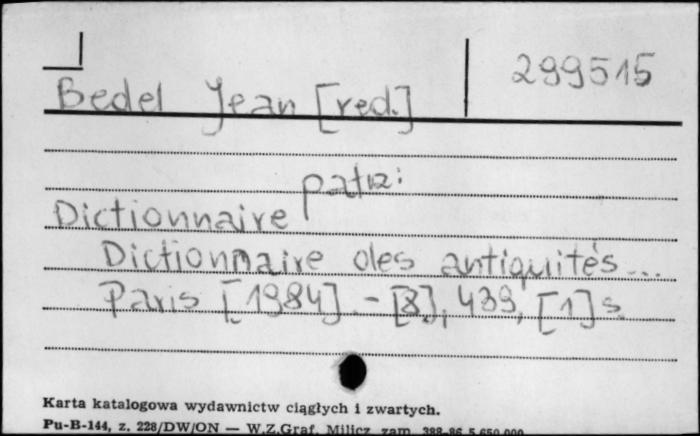 299515
Bedel Jean [red.]
patrz:
Dictionnaire
Dictionnaire des antiquités...
Paris [1984]. - [8], 439, [1] s.
Karta katalogowa wydawnictw ciągłych i zwartych.
Pu-B-144, z. 228/DW/ON — W.Z.Graf. Milicz zam. 388-86 5.650.000